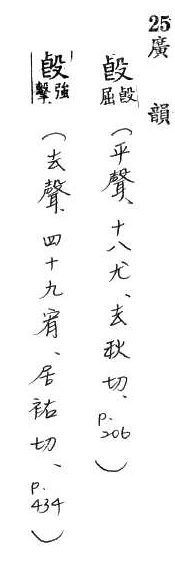 25廣韻
𣪘 𣪘屈(平聲、十八尤、去秋切、p.206)
𣪘 強擊(去聲、四十九宥、居祐切、p.434)